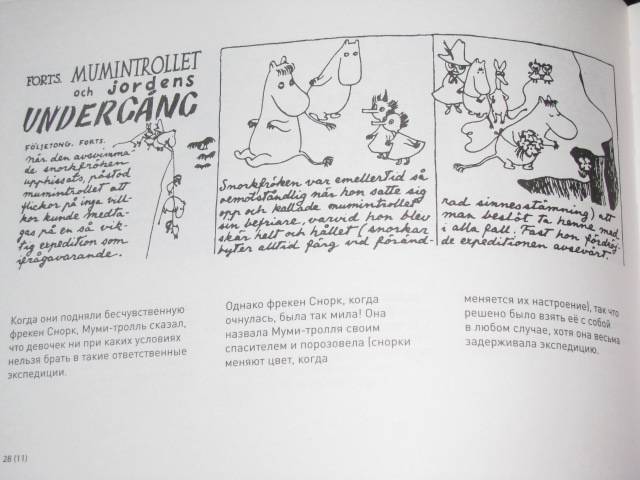 FORTS. MUMINTROLLET
och jordens
UNDERGÅNG
FÖLJETONG. FORTS.
När den avsvimma-
de snorkfröken
upphissats, påstod
mumintrollet att
flickor på inga vill-
kor kunde medta-
gas på en så vik-
tig expedition som
ifrågavarande.
Snorkfröken var emellertid så
oemotståndlig när hon satte sig
opp och kallade mumintrollet
sin befriare, varvid hon blev
skär helt och hållet (snorkar
byter alltid färg vid föränd-
rad sinnesstämning) att
man beslöt ta henne med
i alla fall. Fast hon fördröj-
de expeditionen avsevärt.
Когда они подняли бесчувственную
фрекен Снорк, Муми-тролль сказал,
что девочек ни при каких условиях
нельзя брать в такие ответственные
экспедиции.
Однако фрекен Снорк, когда
очнулась, была так мила! Она
назвала Муми-тролля своим
спасителем и порозовела (снорки
меняют цвет, когда
меняется их настроение), так что
решено было взять её с собой
в любом случае, хотя она весьма
задерживала экспедицию.
28 (11)